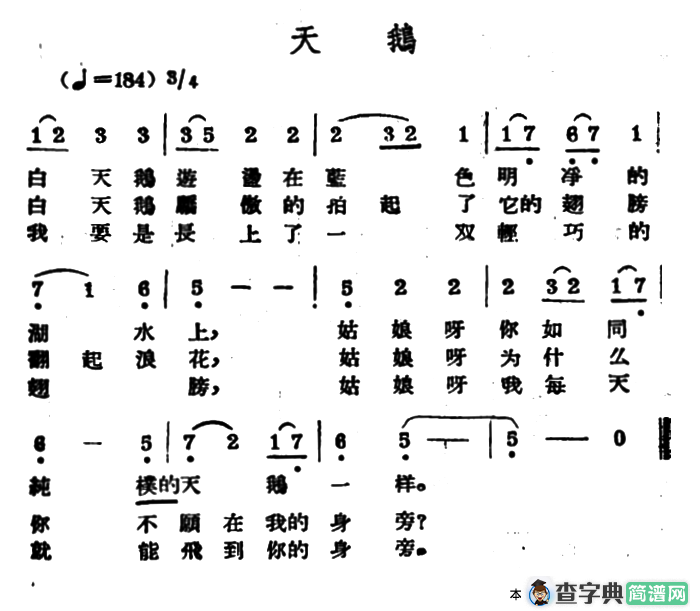 天 鵝
(♩=184) 3/4
1 2 3 3 | 3 5 2 2 | 2 3 2 1 | 1 7 6 7 1 |
白 天 鵝 遊 盪 在 藍 色 明 净 的
白 天 鵝 驕 傲 的 拍 起 了 它的 翅 膀
我 要 是 長 上 了 一 双 輕 巧 的
7 1 6 | 5 — — | 5 2 2 | 2 3 2 1 7 |
湖 水 上, 姑 娘 呀 你 如 同
翻 起 浪 花, 姑 娘 呀 为 什 么
翅 膀, 姑 娘 呀 我 每 天
6 — 5 | 7 2 1 7 | 6 5 — | 5 — 0
純 樸的 天 鵝 一 样。
你 不 願 在 我的 身 旁?
就 能 飛 到 你的 身 旁。
本 查字典 简谱网